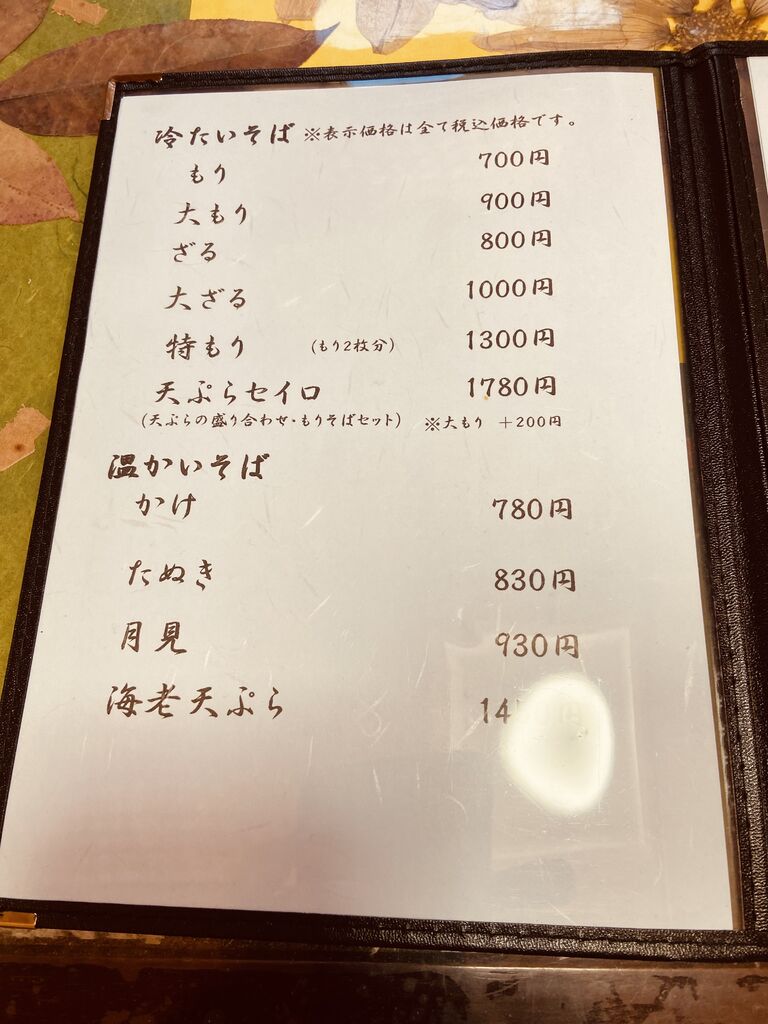 冷たいそば ※表示価格は全て税込価格です。
もり 700円
大もり 900円
ざる 800円
大ざる 1000円
特もり (もり2枚分) 1300円
天ぷらセイロ 1780円
(天ぷらの盛り合わせ・もりそばセット) ※大もり +200円
温かいそば
かけ 780円
たぬき 830円
月見 930円
海老天ぷら